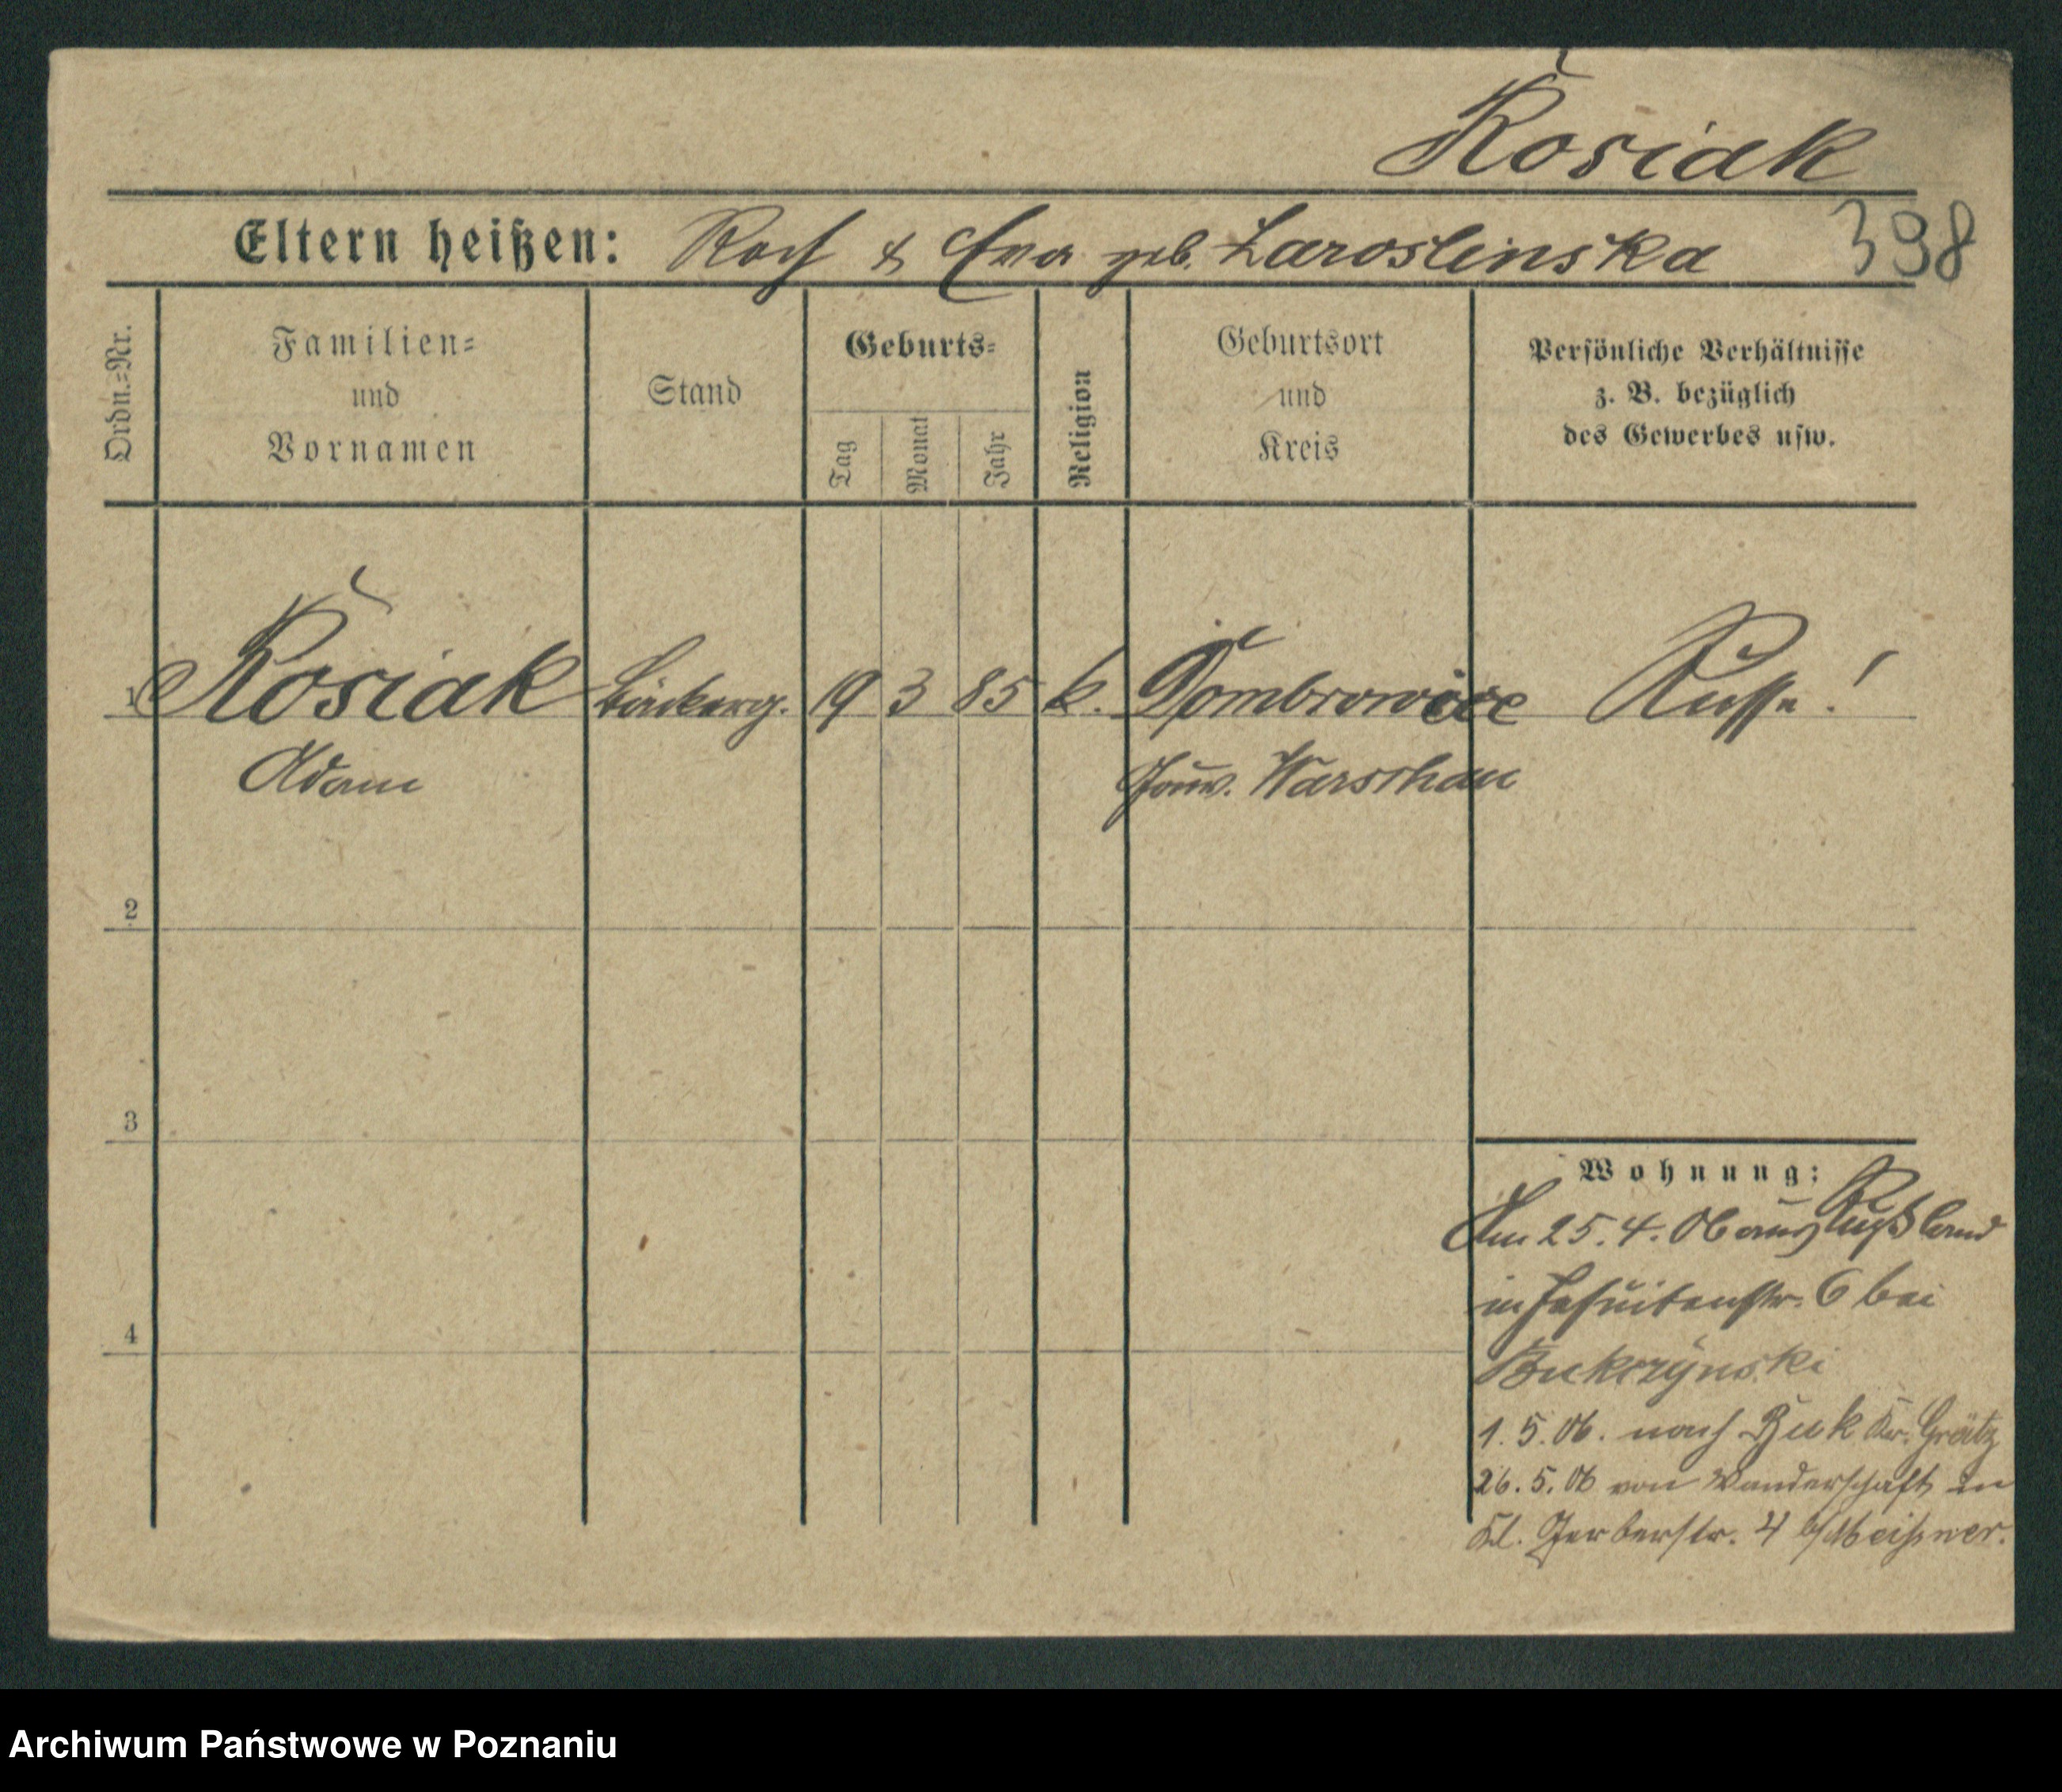 Kosiak
Eltern heißen: Roch & Eva geb. Laroslinska
398
Ordn.=Nr.
Familien=
und
Vornamen
Stand
Geburts=
Tag
Monat
Jahr
Religion
Geburtsort
und
Kreis
Persönliche Verhältnisse
z. B. bezüglich
des Gewerbes usw.
1 Kosiak Bäckerg. 19 3 85 k. Dombrowice Russe!
Adam Gouv. Warschau
2
3
4
Wohnung:
Am 25.4.06 aus Rußland
in Jesuitenstr. 6 bei
Bukczynski
1.5.06. nach Buk Kr. Grätz
26.5.06 von Wanderschaft in
Kl. Gerberstr. 4 b/Meißner.
Archiwum Państwowe w Poznaniu